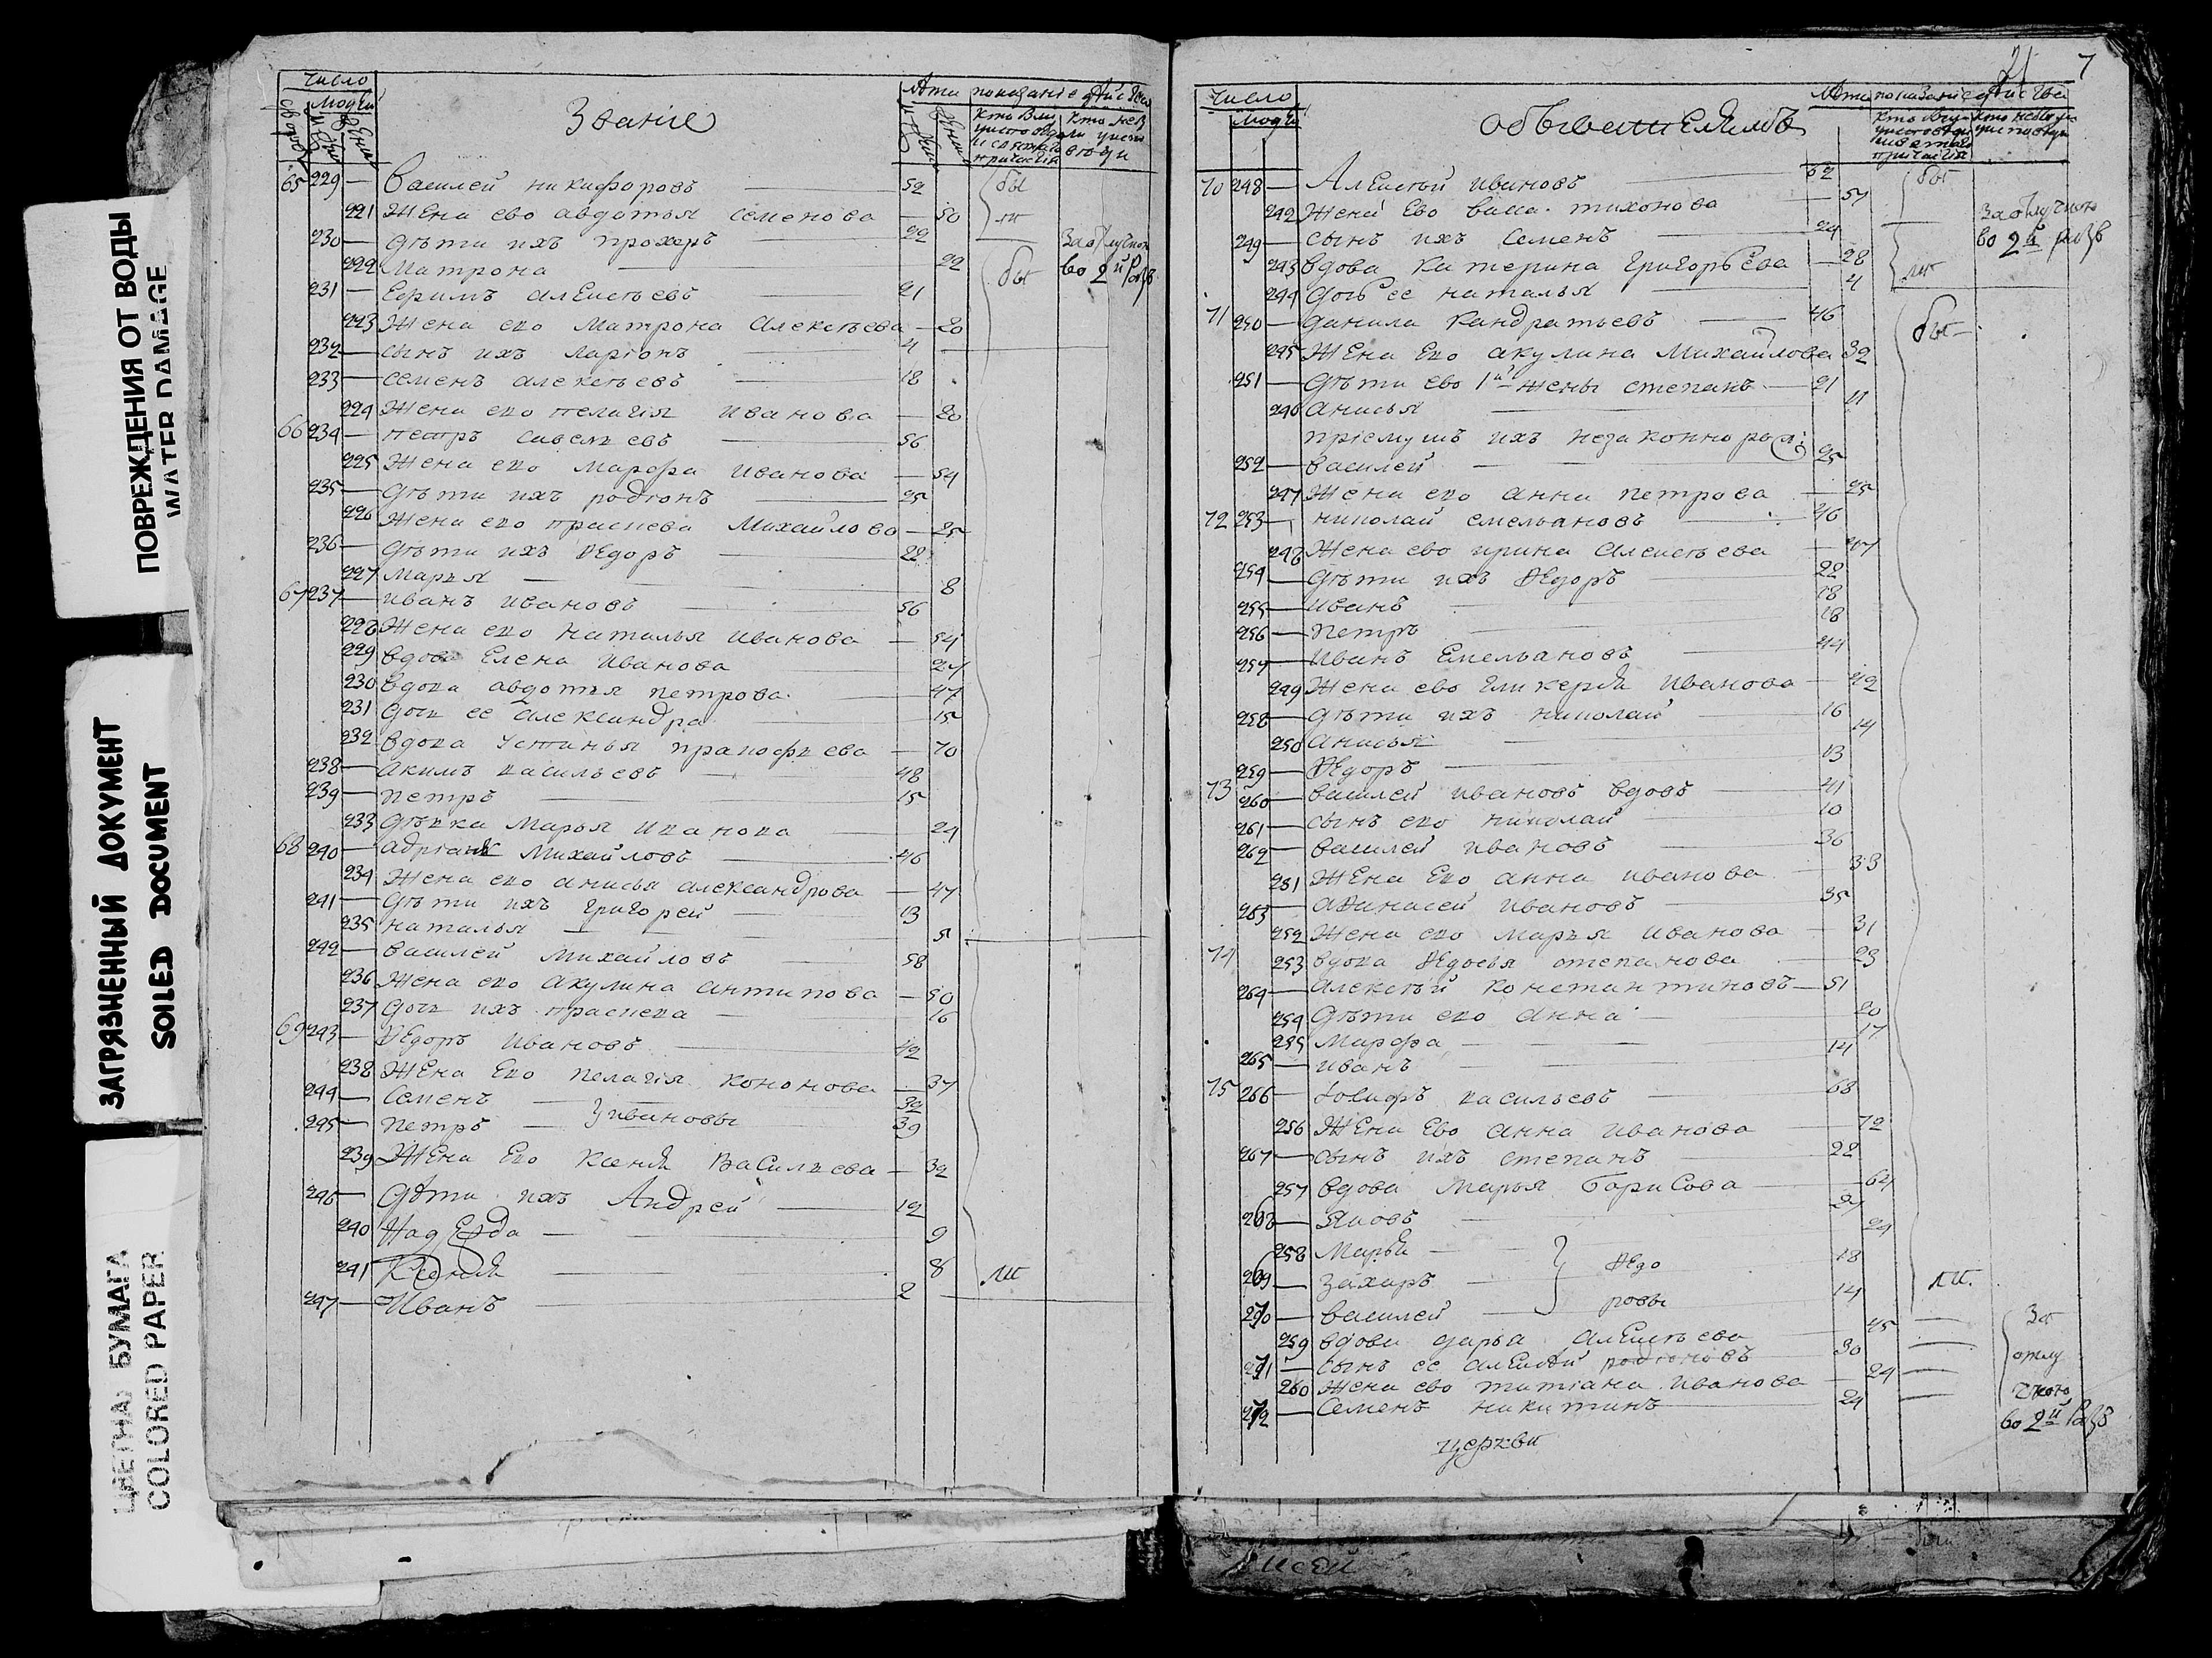 ПОВРЕЖДЕНИЯ ОТ ВОДЫ
WATER DAMAGE
ЗАГРЯЗНЕННЫЙ ДОКУМЕНТ
SOILED DOCUMENT
ЦВЕТНАЯ БУМАГА
COLORED PAPER
число
людей
Званіе
Лѣта показаніе дѣйства
65 229 — Василей никифоровъ — 52 бы
221 Жена ево авдотья семенова — 50 ли
230 — дѣти ихъ прохоръ — 22 За отлучкою
222 Матрона — 22 бы во 2й разъ
231 — Ефимъ алексѣевъ — 21
223 Жена ево Матрона Алексѣева — 20
232 — сынъ ихъ ларіонъ — 4
233 — семенъ алексѣевъ — 18
224 Жена ево пелагія иванова — 20
66 234 — петръ савельевъ — 56
225 Жена ево Марфа иванова — 54
235 — дѣти ихъ родіонъ — 25
226 Жена ево праскева Михайлова — 25
236 — дѣти ихъ Ѳедоръ — 22
227 Марья — 8
67 237 — иванъ ивановъ — 56
228 Жена ево наталья иванова — 54
229 вдова Елена иванова 27
230 вдова авдотья петрова — 47
231 дочь ее александра — 15
232 вдова устинья пракофьева — 70
238 — акимъ васильевъ — 48
239 — петръ — 15
233 дѣвка Марья иванова — 24
68 240 — адріанъ Михайловъ — 46
234 Жена ево анисья александрова — 47
241 — дѣти ихъ григорей — 13
235 наталья — 5
242 — василей Михайловъ — 58
236 Жена ево акулина антипова — 50
237 дочь ихъ праскева — 16
69 243 — Ѳедоръ ивановъ — 42
238 Жена Ево пелагія кононова — 37
244 — Семенъ — 32
245 — петръ — } ивановы 39
239 Жена Ево Ксенія Васильева — 32
246 — Дѣти ихъ Андрей — 12
240 Надежда — 9
241 Ксенія — 8 ли
247 — Иванъ — 2
21 7
число
людей
объвателямъ
Лѣта показаніе дѣйства
70 248 — Алексѣй ивановъ — 62 бы
242 Жена Ево васа тихонова — 57 За отлучкою
249 — сынъ ихъ Семенъ — 24 во 2й разъ
243 вдова катерина григорьева — 28 ли
244 дочь ее наталья — 4
71 250 — данила кандратьевъ — 46 бы
245 Жена Ево акулина Михайлова 32
251 — дѣти ево 1й жены степанъ — 21
246 анисья — 11
пріемышъ ихъ незаконнорож:
252 — василей — 25
247 Жена ево анна петрова — 25
72 253 — николай емельановъ — 46
248 Жена ево ирина алексѣева — 47
254 — дѣти ихъ Ѳедоръ 22
255 — иванъ — 18
256 — петръ — 18
257 — иванъ Емельановъ — 44
249 Жена ево гликерія иванова — 42
258 — дѣти ихъ николай — 16
250 анисья — 14
259 — Ѳедоръ — 13
73 260 — василей ивановъ вдовъ — 41
261 — сынъ ево николай — 10
262 — василей ивановъ — 36
251 Жена Ево анна иванова — 33
263 — аѳанасей ивановъ — 35
252 Жена ево Марья иванова — 31
74 253 вдова Ѳедосья степанова — 23
264 — алексѣй константиновъ — 51
254 дѣти ево анна — 20
255 Марфа — 17
265 — иванъ — 14
75 266 — Іосифъ васильевъ — 68
256 Жена Ево анна иванова — 72
267 — сынъ ихъ степанъ — 22
257 вдова Марья борисова — 64
268 — Яковъ — 27
258 Марья — } Ѳедо 24
269 — захаръ — 18 ли.
270 — василей — ровы 14
259 вдова дарья алексѣева 45 — За
271 — сынъ ее алексѣй родіоновъ 30 — отлу
260 Жена ево татіана иванова — 24 — чкою
272 — Семенъ никитинъ 24 — во 2й разъ
церкви